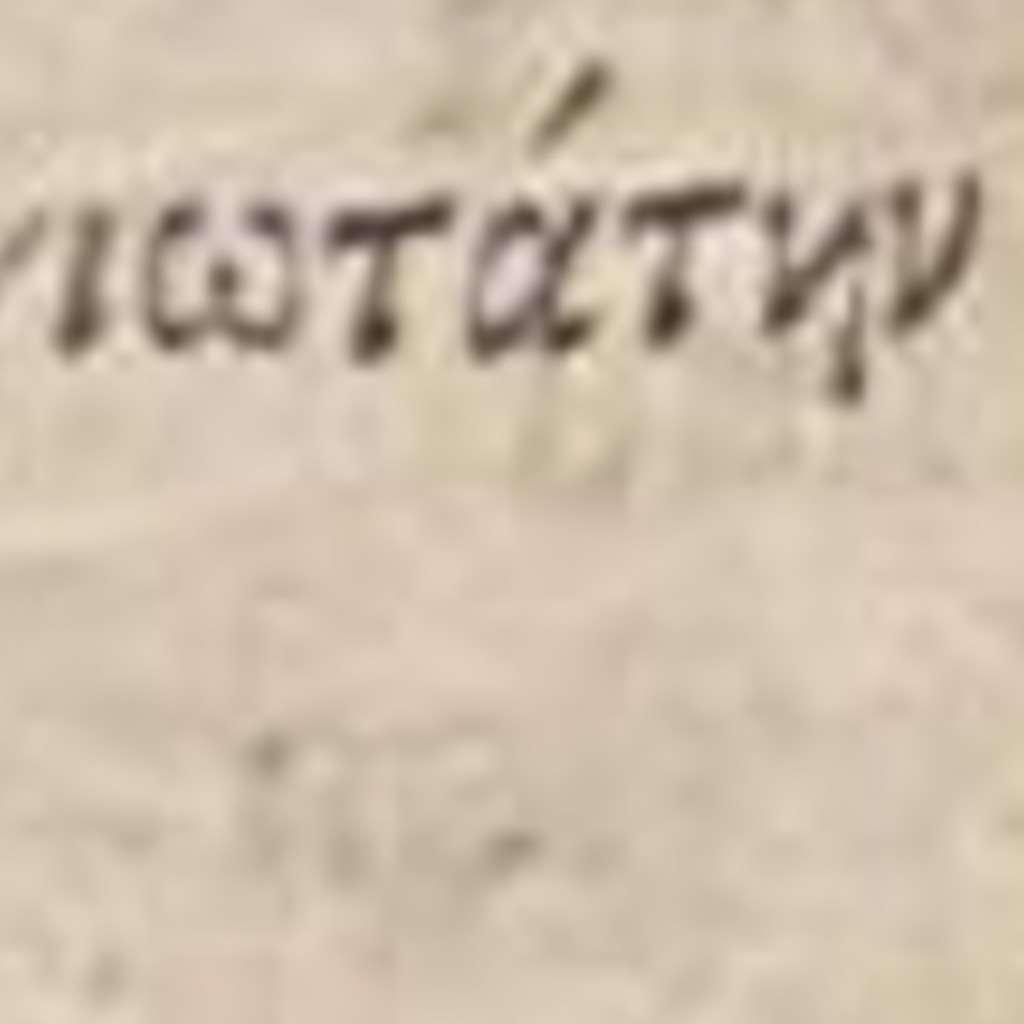 ιωτάτην